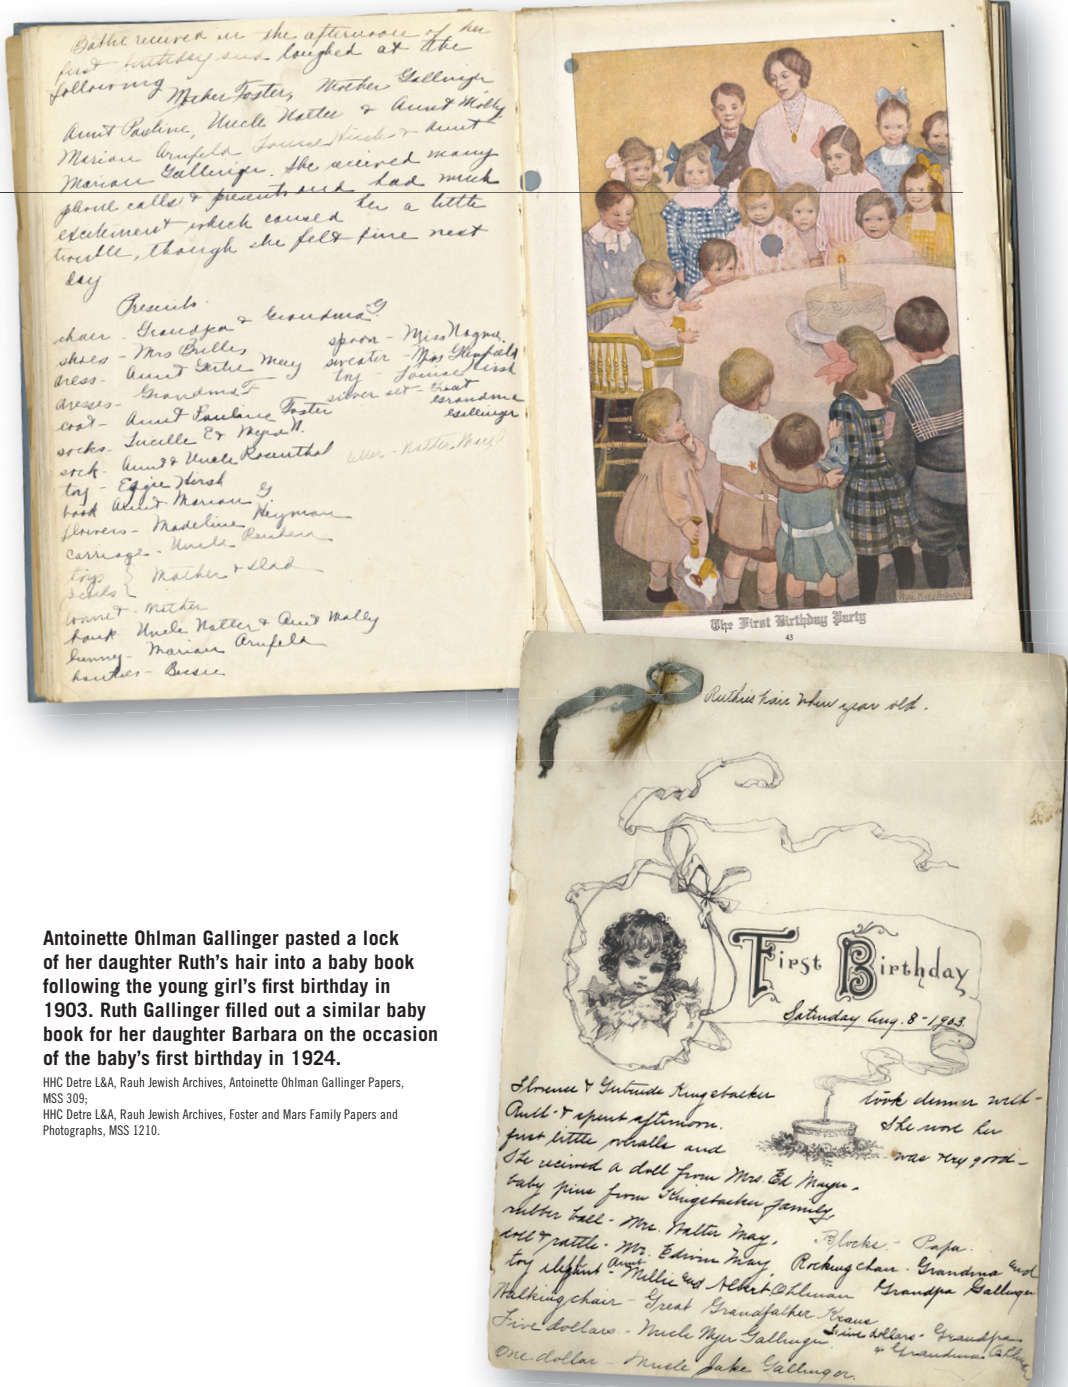 Bobbie received in the afternoon of her
first birthday and laughed at the
following Mother Foster, Mother Gallinger
Aunt Pauline, Uncle Natter & Aunt Molly
Marian Arnfeld Louise Hirsh & Aunt
Marian Gallinger. She received many
phone calls & presents and had much
excitement which caused her a little
trouble, though she felt fine next
day
Presents
chair - Grandpa & Grandma G.
shoes - Mrs Brilles
dress - Aunt Gertie May
dresses - Grandma F
coat - Aunt Pauline Foster
socks - Lucille E & Myra N.
sock - Aunt & Uncle Rosenthal
toy - Effie Hirsh
book Aunt Marian G
flowers - Madeline Heyman
carriage - Uncle Reuben
toys } Mother & Dad
beads }
bonnet - Mother
bank Uncle Natter & Aunt Molly
bunny - Marian Arnfeld
booties - Bessie
spoon - Miss
sweater - Mrs
toy - Louise Hirsh
silver set - Great
Grandma
Gallinger
The First Birthday Party
43
Ruthie's hair when year old.
First Birthday
Saturday Aug. 8 - 1903.
Florence & Gertrude Kingsbacker took dinner with
Ruth - & spent afternoon. She wore her
first little overalls and was very good -
She received a doll from Mrs. Ed Mayer.
baby pins from Kingsbacker family,
rubber ball - Mrs. Walter May. Blocks - Papa.
doll & rattle - Mr. Edwin May, Rocking chair - Grandma and
toy elephant - Aunt Millie and Albert Ohlman Grandpa Gallinger
Walking chair - Great Grandfather Kraus
Five dollars - Uncle Myer Gallinger. Five dollars - Grandpa
& Grandma Ohlman
One dollar - Uncle Jake Gallinger.
Antoinette Ohlman Gallinger pasted a lock
of her daughter Ruth's hair into a baby book
following the young girl's first birthday in
1903. Ruth Gallinger filled out a similar baby
book for her daughter Barbara on the occasion
of the baby's first birthday in 1924.
HHC Detre L&A, Rauh Jewish Archives, Antoinette Ohlman Gallinger Papers,
MSS 309;
HHC Detre L&A, Rauh Jewish Archives, Foster and Mars Family Papers and
Photographs, MSS 1210.